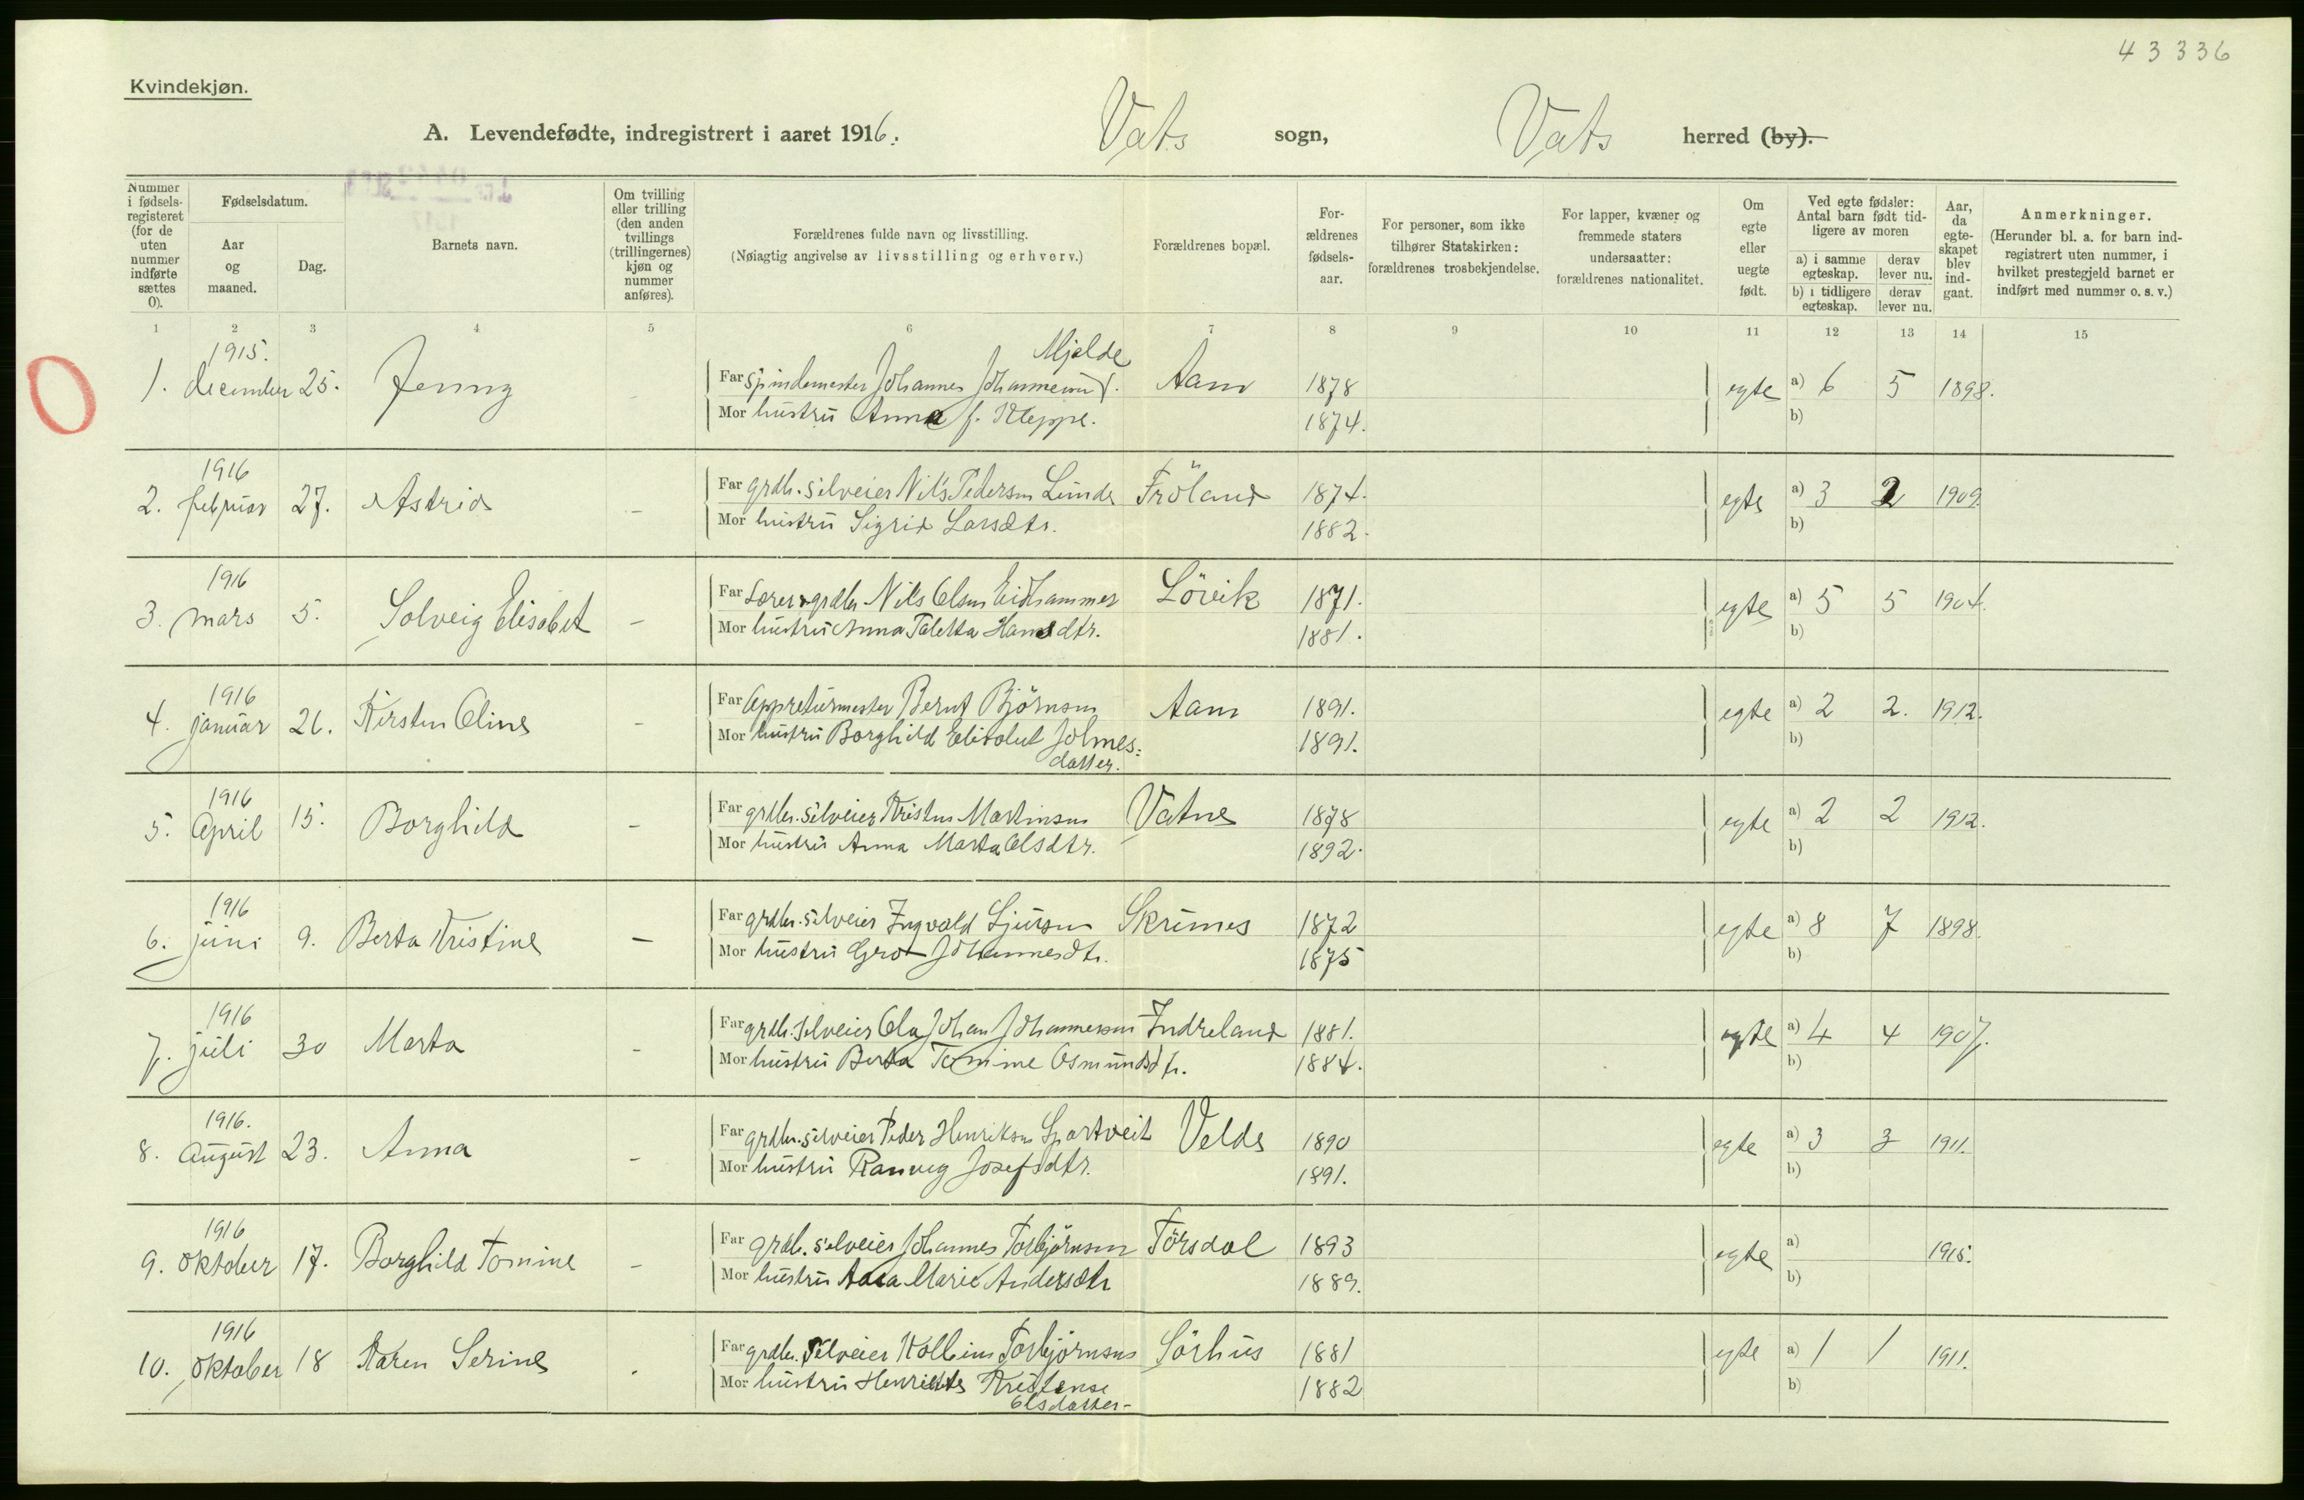 43336
Kvindekjøn.
A. Levendefødte, indregistrert i aaret 1916. Vats sogn, Vats herred (by).
Nummer i fødsels-registeret (for de uten nummer indførte sættes 0).
Fødselsdatum.
Aar og maaned.
Dag.
Barnets navn.
Om tvilling eller trilling (den anden tvillings (trillingernes) kjøn og nummer anføres).
Forældrenes fulde navn og livsstilling.
(Nøiagtig angivelse av livsstilling og erhverv.)
Forældrenes bopæl.
For-ældrenes fødsels-aar.
For personer, som ikke tilhører Statskirken: forældrenes trosbekjendelse.
For lapper, kvæner og fremmede staters undersaatter: forældrenes nationalitet.
Om egte eller uegte født.
Ved egte fødsler: Antal barn født tid-ligere av moren
a) i samme egteskap. derav lever nu.
b) i tidligere egteskap. derav lever nu.
Aar, da egte-skapet blev ind-gaat.
Anmerkninger.
(Herunder bl. a. for barn ind-registrert uten nummer, i hvilket prestegjeld barnet er indført med nummer o. s. v.)
1 2 3 4 5 6 7 8 9 10 11 12 13 14 15
1915. Mjelde
1. december 25. Jenny Far Spindemester Johannes Aam 1878 egte a) 6 5 1898.
Mor hustru Anna f. Kleppe. 1874. b)
1916
2. februar 27. Astrid - Far grdbr. selveier Nils Pedersen Lunde Fröland 1874. egte a) 3 2 1909.
Mor hustru Sigrid Larsdtr. 1882. b)
1916
3. mars 5. Solveig Elisabet - Far Lærer & grdbr Nils Olsen Eidhammer Lövik 1871. egte a) 5 5 1904.
Mor hustru Anna Taletta Hansdtr. 1881. b)
1916
4. januar 26. Kirsten Oline - Far Appreturmester Bernt Björnsen Aam 1891. egte a) 2 2. 1912.
Mor hustru Borghild Elisabet 1891. b)
datter.
1916
5. April 15. Borghild - Far grdbr. selveier Kristen Martinsen Vatne 1878 egte a) 2 2 1912.
Mor hustru Anna Marta Olsdtr. 1892. b)
1916
6. juni 9. Berta Kristine - Far grdbr. selveier Ingvald Sjursen Skrunes 1872 egte a) 8 7 1898.
Mor hustru Gro Johannesdtr. 1875 b)
1916
7. juli 30 Marta - Far grdbr. selveier Ola Johan Johannessen Indreland 1881. egte a) 4 4 1907.
Mor hustru Berta Tomine Osmundsdtr. 1884. b)
1916.
8. August 23. Anna - Far grdbr. selveier Peder Henriksen Spartveit Velde 1890 egte a) 3 3 1911.
Mor hustru Ranveig Josefsdtr. 1891. b)
1916
9. oktober 17. Borghild Tomine - Far grdbr. selveier Johannes Torbjörnsen Törsdal 1893 egte a) 1915.
Mor hustru Marie Andersdtr 1889. b)
1916
10. oktober 18 Karen Serine . Far grdbr. selveier Kolbein Torbjörnsen Sörhus 1881 egte a) 1 1 1911.
Mor hustru Henriette Kristense 1882 b)
Olsdatter-